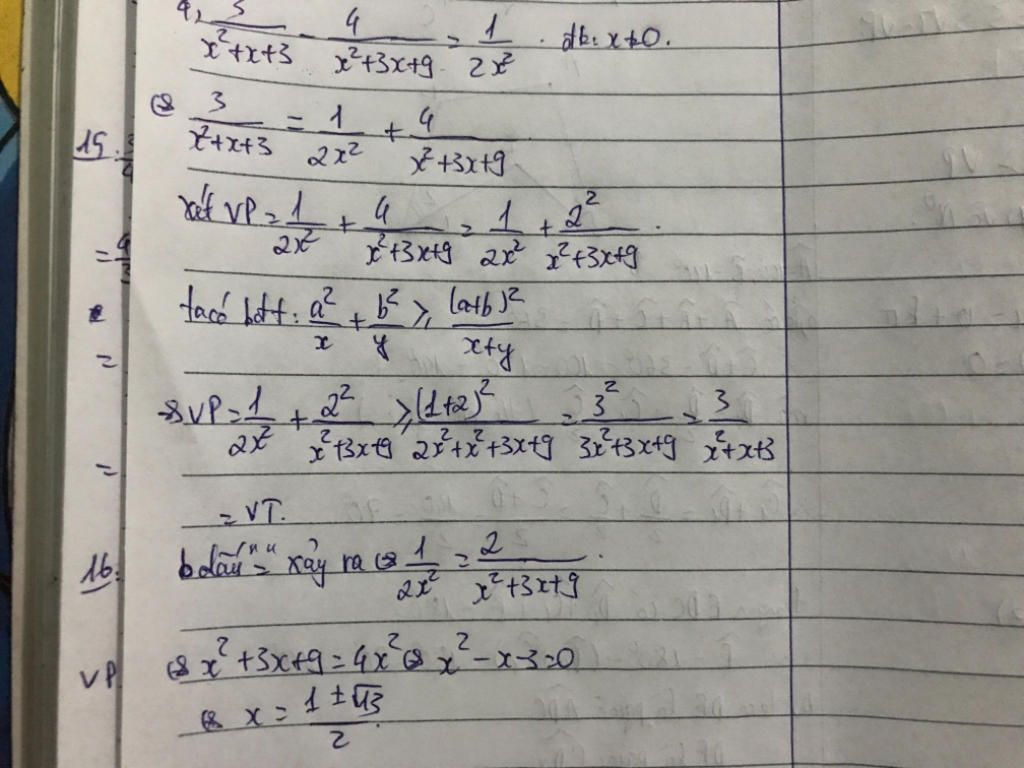 9, 3/(x²+x+3) - 4/(x²+3x+9) = 1/(2x²) . đk: x≠0.
⇔ 3/(x²+x+3) = 1/(2x²) + 4/(x²+3x+9)
15.
xét VP = 1/(2x²) + 4/(x²+3x+9) = 1/(2x²) + 2²/(x²+3x+9) .
=
ta có bđt: a²/x + b²/y ≥ (a+b)²/(x+y)
=
⇒ VP = 1/(2x²) + 2²/(x²+3x+9) ≥ (1+2)²/(2x²+x²+3x+9) = 3²/(3x²+3x+9) = 3/(x²+x+3)
=
= VT.
16. dấu "=" xảy ra ⇔ 1/(2x²) = 2/(x²+3x+9) .
VP ⇔ x²+3x+9 = 4x² ⇔ x²-x-3=0
⇔ x = (1±√13)/2